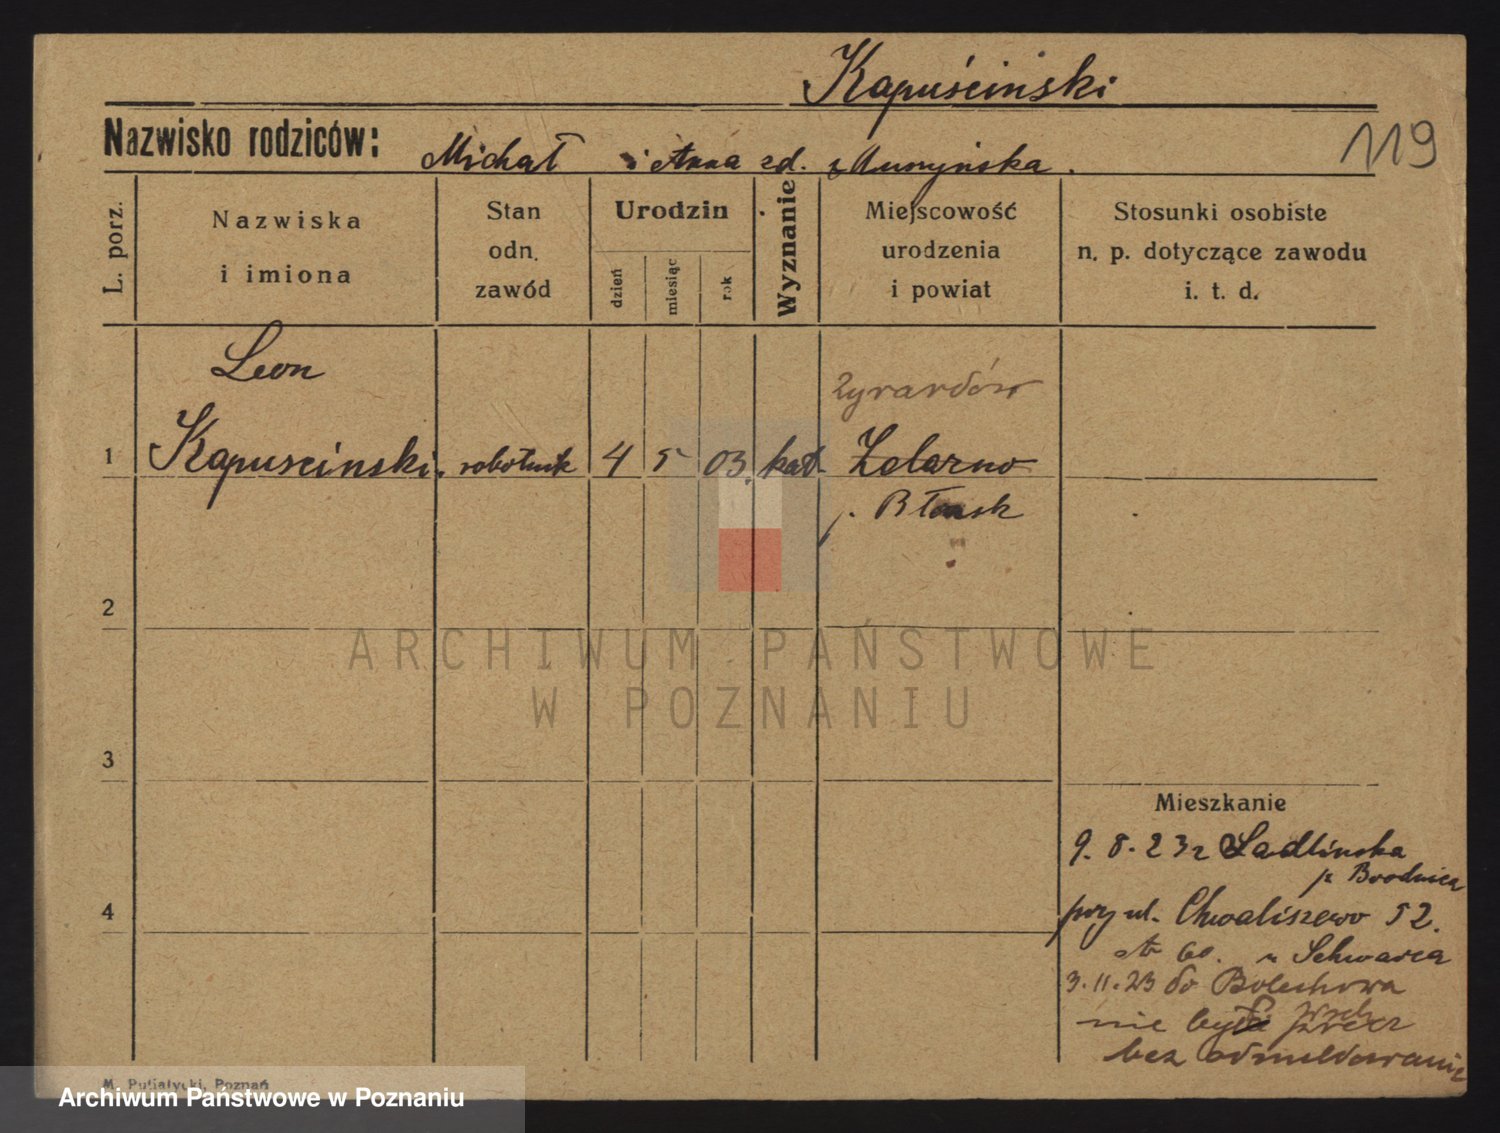 Kapuściński
119
Nazwisko rodziców: Michał i Anna
L. porz.
Nazwiska i imiona
Stan odn. zawód
Urodzin
dzień
miesiąc
rok
Wyznanie
Miejscowość urodzenia i powiat
Stosunki osobiste n. p. dotyczące zawodu i. t. d.
Leon
Żyrardów
1 Kapuscinski. robotnik 4 5 03. kat. Zelazno
p. Błonsk
2
ARCHIWUM PAŃSTWOWE
W POZNANIU
3
Mieszkanie
9. 8. 23 z Sadlinska
p. Brodnica
4
przy ul. Chwaliszewo 52.
u Schwarca
3.11.23 do Bolechowa
nie był
bez odmeldowania
M. Putiatycki, Poznań
Archiwum Państwowe w Poznaniu